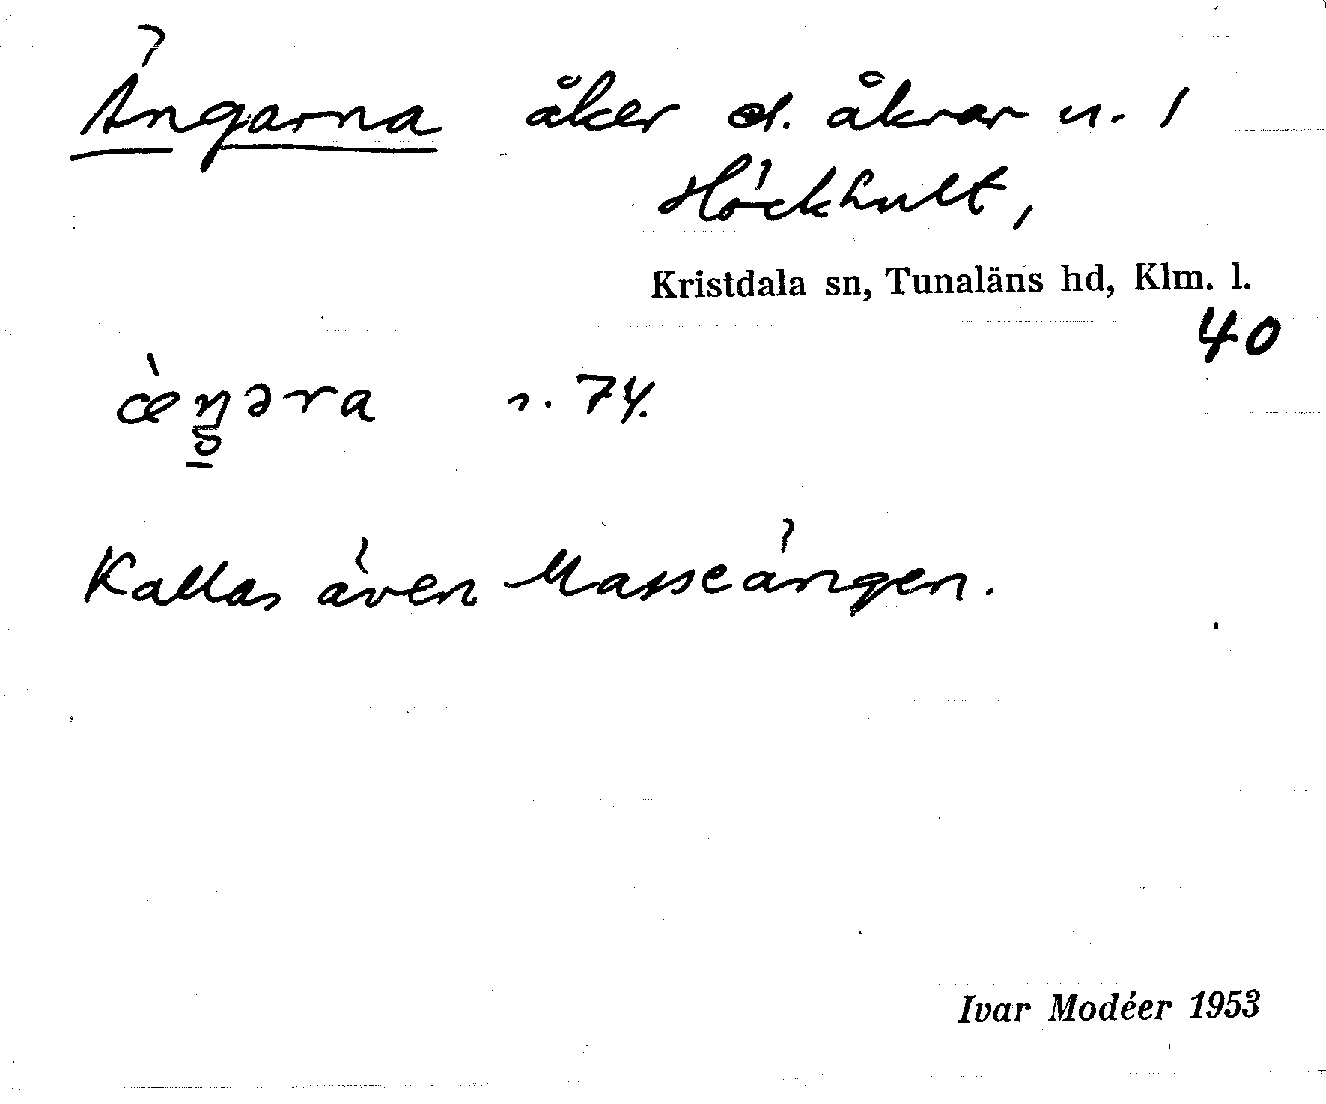 Ängarna åker el. åkrar u. 1
Höckhult,
Kristdala sn, Tunaläns hd, Klm. l.
40
æ̀ŋəra r. 74.
Kallas även Masseängen.
Ivar Modéer 1953